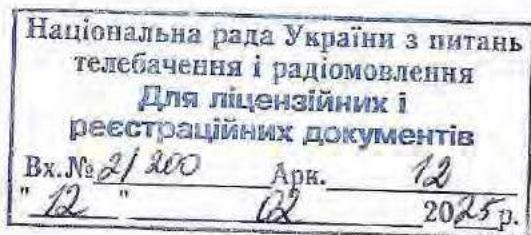 Національна рада України з питань
телебачення і радіомовлення
Для ліцензійних і
реєстраційних документів
Вх.№ 2/200 Арк. 12
" 12 " 02 2025 р.